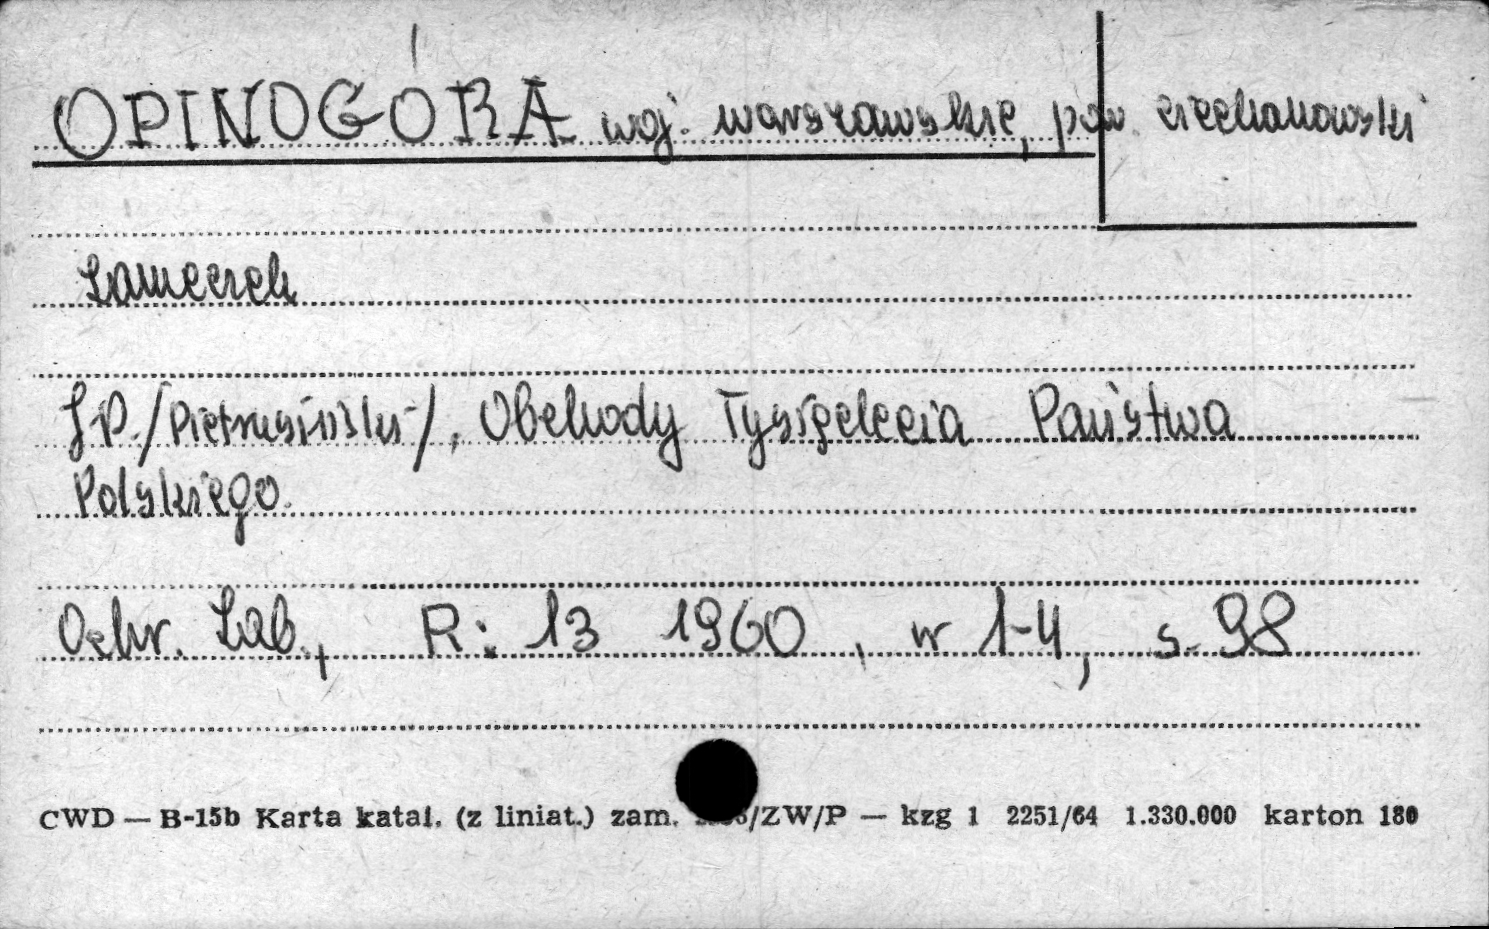 OPINOGÓRA woj. warszawskie, pow. ciechanowski
Zameczek
JP. /Pietrusiński/, Obchody Tysiąclecia Państwa
Polskiego.
Ochr. Zab., R: 13 1960, nr 1-4, s. 98
CWD — B-15b Karta katal. (z liniat.) zam. /ZW/P — kzg 1 2251/64 1.330.000 karton 180